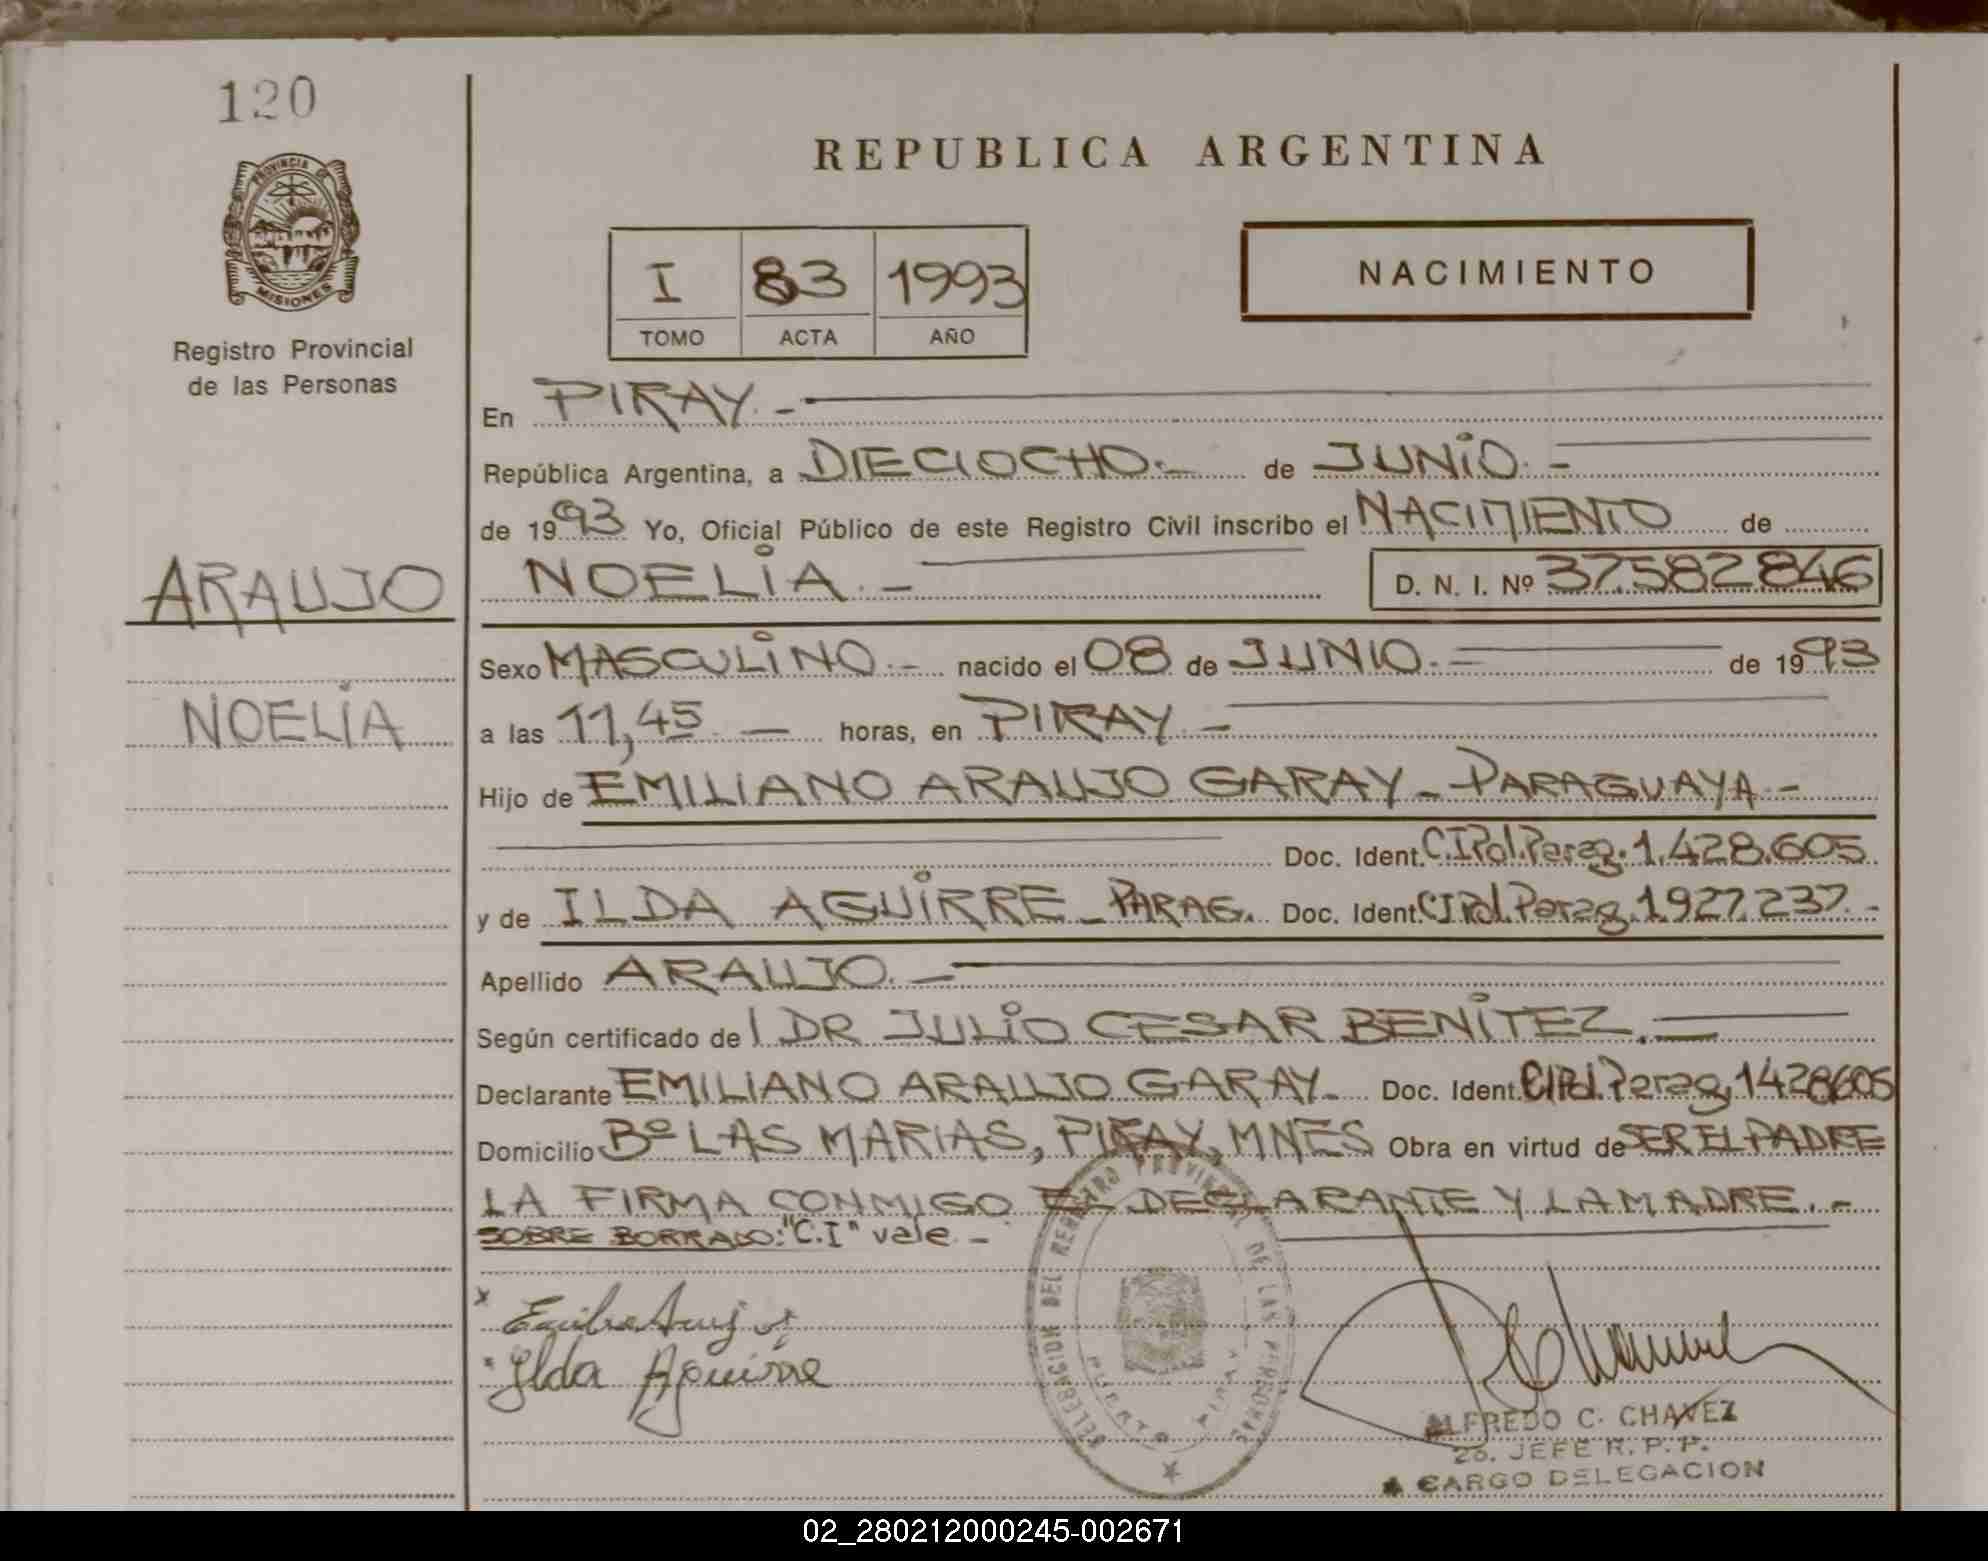 120
PROVINCIA DE
MISIONES
Registro Provincial
de las Personas
ARAUJO
NOELIA
REPUBLICA ARGENTINA
I 83 1993
TOMO ACTA AÑO
NACIMIENTO
En PIRAY.-
República Argentina, a DIECIOCHO.- de JUNIO.-
de 1993 Yo, Oficial Público de este Registro Civil inscribo el NACIMIENTO de
NOELIA.- D. N. I. Nº 37.582.846
Sexo MASCULINO.- nacido el 08 de JUNIO.- de 1993
a las 11,45.- horas, en PIRAY.-
Hijo de EMILIANO ARAUJO GARAY - PARAGUAYA.-
Doc. Ident. C.I.Pol.Parag. 1.428.605
y de ILDA AGUIRRE - PARAG. Doc. Ident. C.I.Pol.Parag. 1.927.237.-
Apellido ARAUJO.-
Según certificado de l DR JULIO CESAR BENITEZ.-
Declarante EMILIANO ARAUJO GARAY- Doc. Ident. C.I.Pol.Parag. 1428605
Domicilio Bº LAS MARIAS, PIRAY, MNES Obra en virtud de SER EL PADRE
LA FIRMA CONMIGO EL DECLARANTE Y LA MADRE.-
SOBRE BORRADO: "C.I" vale.-
Ilda Aguirre
DELEGACION DEL REGISTRO PROVINCIAL DE LAS PERSONAS
PUERTO PIRAY
ALFREDO C. CHAVEZ
2o. JEFE R. P. P.
A CARGO DELEGACION
02_280212000245-002671